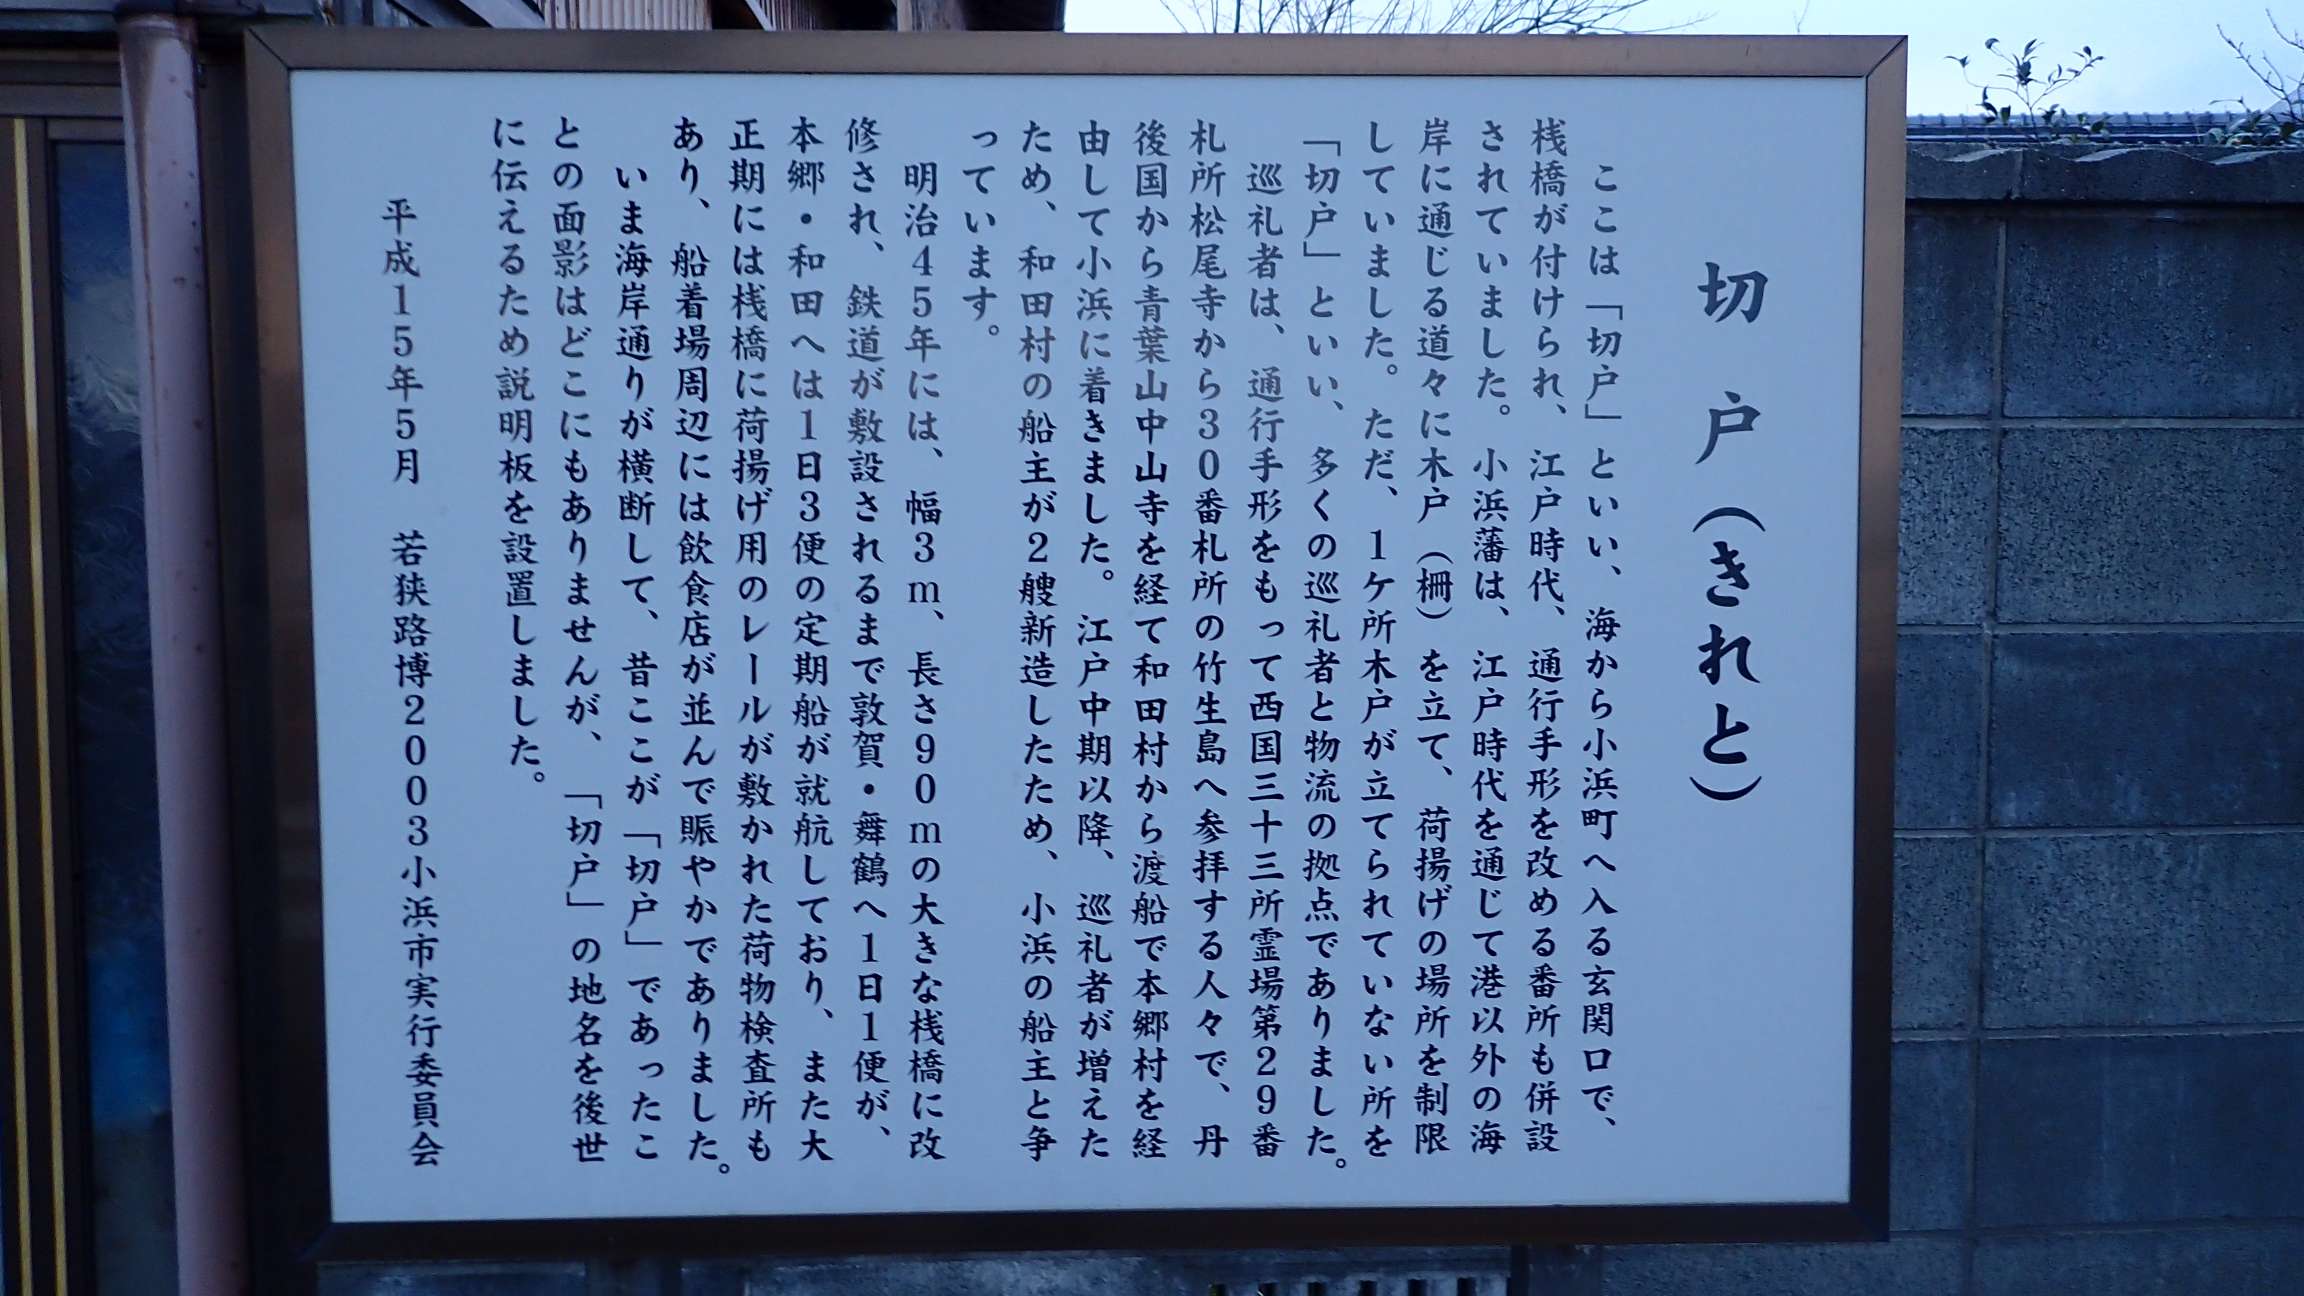 切戸（きれと）
ここは「切戸」といい、海から小浜町へ入る玄関口で、
桟橋が付けられ、江戸時代、通行手形を改める番所も併設
されていました。小浜藩は、江戸時代を通じて港以外の海
岸に通じる道々に木戸（柵）を立て、荷揚げの場所を制限
していました。ただ、1ケ所木戸が立てられていない所を
「切戸」といい、多くの巡礼者と物流の拠点でありました。
巡礼者は、通行手形をもって西国三十三所霊場第29番
札所松尾寺から30番札所の竹生島へ参拝する人々で、丹
後国から青葉山中山寺を経て和田村から渡船で本郷村を経
由して小浜に着きました。江戸中期以降、巡礼者が増えた
ため、和田村の船主が2艘新造したため、小浜の船主と争
っています。
明治45年には、幅3m、長さ90mの大きな桟橋に改
修され、鉄道が敷設されるまで敦賀・舞鶴へ1日1便が、
本郷・和田へは1日3便の定期船が就航しており、また大
正期には桟橋に荷揚げ用のレールが敷かれた荷物検査所も
あり、船着場周辺には飲食店が並んで賑やかでありました。
いま海岸通りが横断して、昔ここが「切戸」であったこ
との面影はどこにもありませんが、「切戸」の地名を後世
に伝えるため説明板を設置しました。
平成15年5月　若狭路博2003小浜市実行委員会